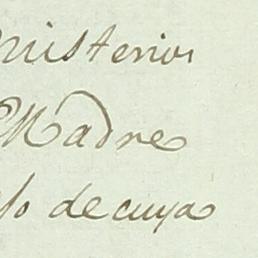 Misterios
Madre
so de cuya